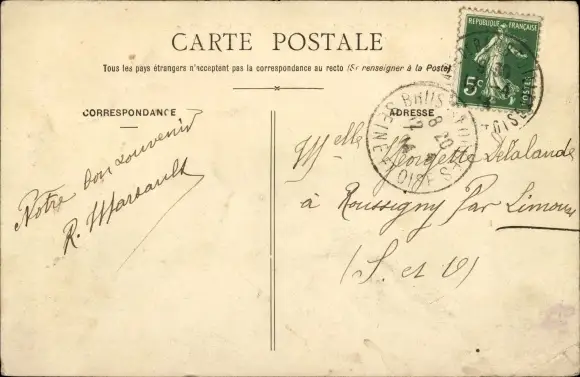 CARTE POSTALE
Tous les pays étrangers n'acceptent pas la correspondance au recto (Se renseigner à la Poste)
CORRESPONDANCE
ADRESSE
REPUBLIQUE FRANÇAISE
5c
POSTES
8 20
SEINE ET OISE
Notre bon souvenir
R. Marsault
Melle Georgette Delalande
à Roussigny Par Limours
(S. et O)